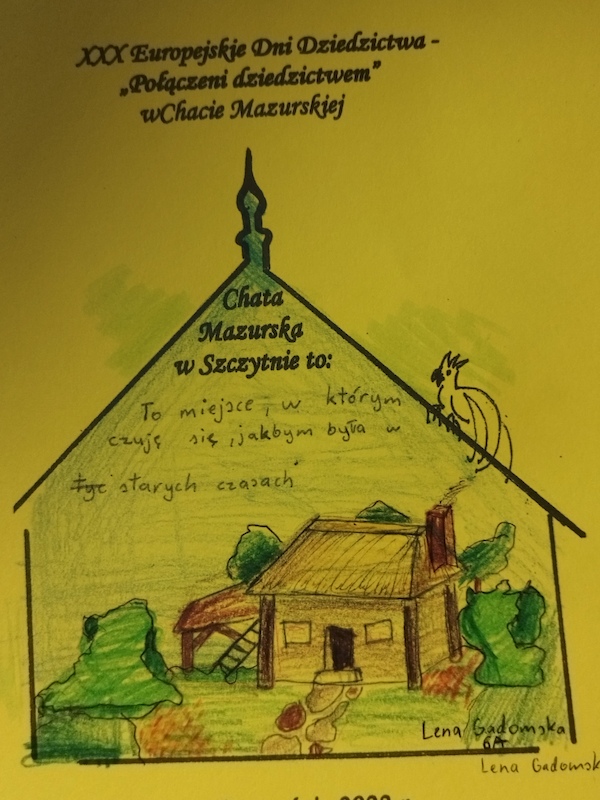 XXX Europejskie Dni Dziedzictwa -
„Połączeni dziedzictwem”
wChacie Mazurskiej
Chata
Mazurska
w Szczytnie to:
To miejsce, w którym
czuję się, jakbym była w
żyć starych czasach
Lena Gadomska
6A
Lena Gadomsk